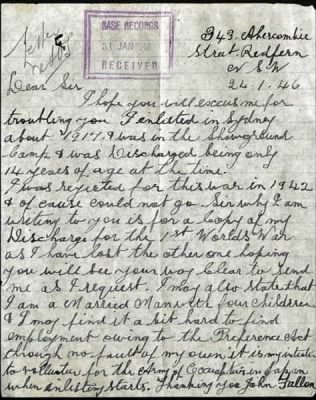 BASE RECORDS
31 JAN 1946
RECEIVED
243. Abercombie
Street Redfern
N S W
24.1.46
Dear Sir
I hope you will excuse me for
troubling you I enlisted in Sydney
about 1917. I was in the Showground
Camp & was Discharged being only
14 years of age at the time.
I was rejected for this war in 1942
& of cause could not go. Sir why I am
writing to you is for a Copy of my
Discharge for the 1st Worlds War
as I have lost the other one hoping
you will see your way Clear to send
me as I request. I may also state that
I am a Married Man with four Children
& I may find it a bit hard to find
employment owing to the Preference Act
through no fault of my own it is my intention
to volunteer for the Army of Occupation in Japan
when enlisting starts. Thanking you John Fallon